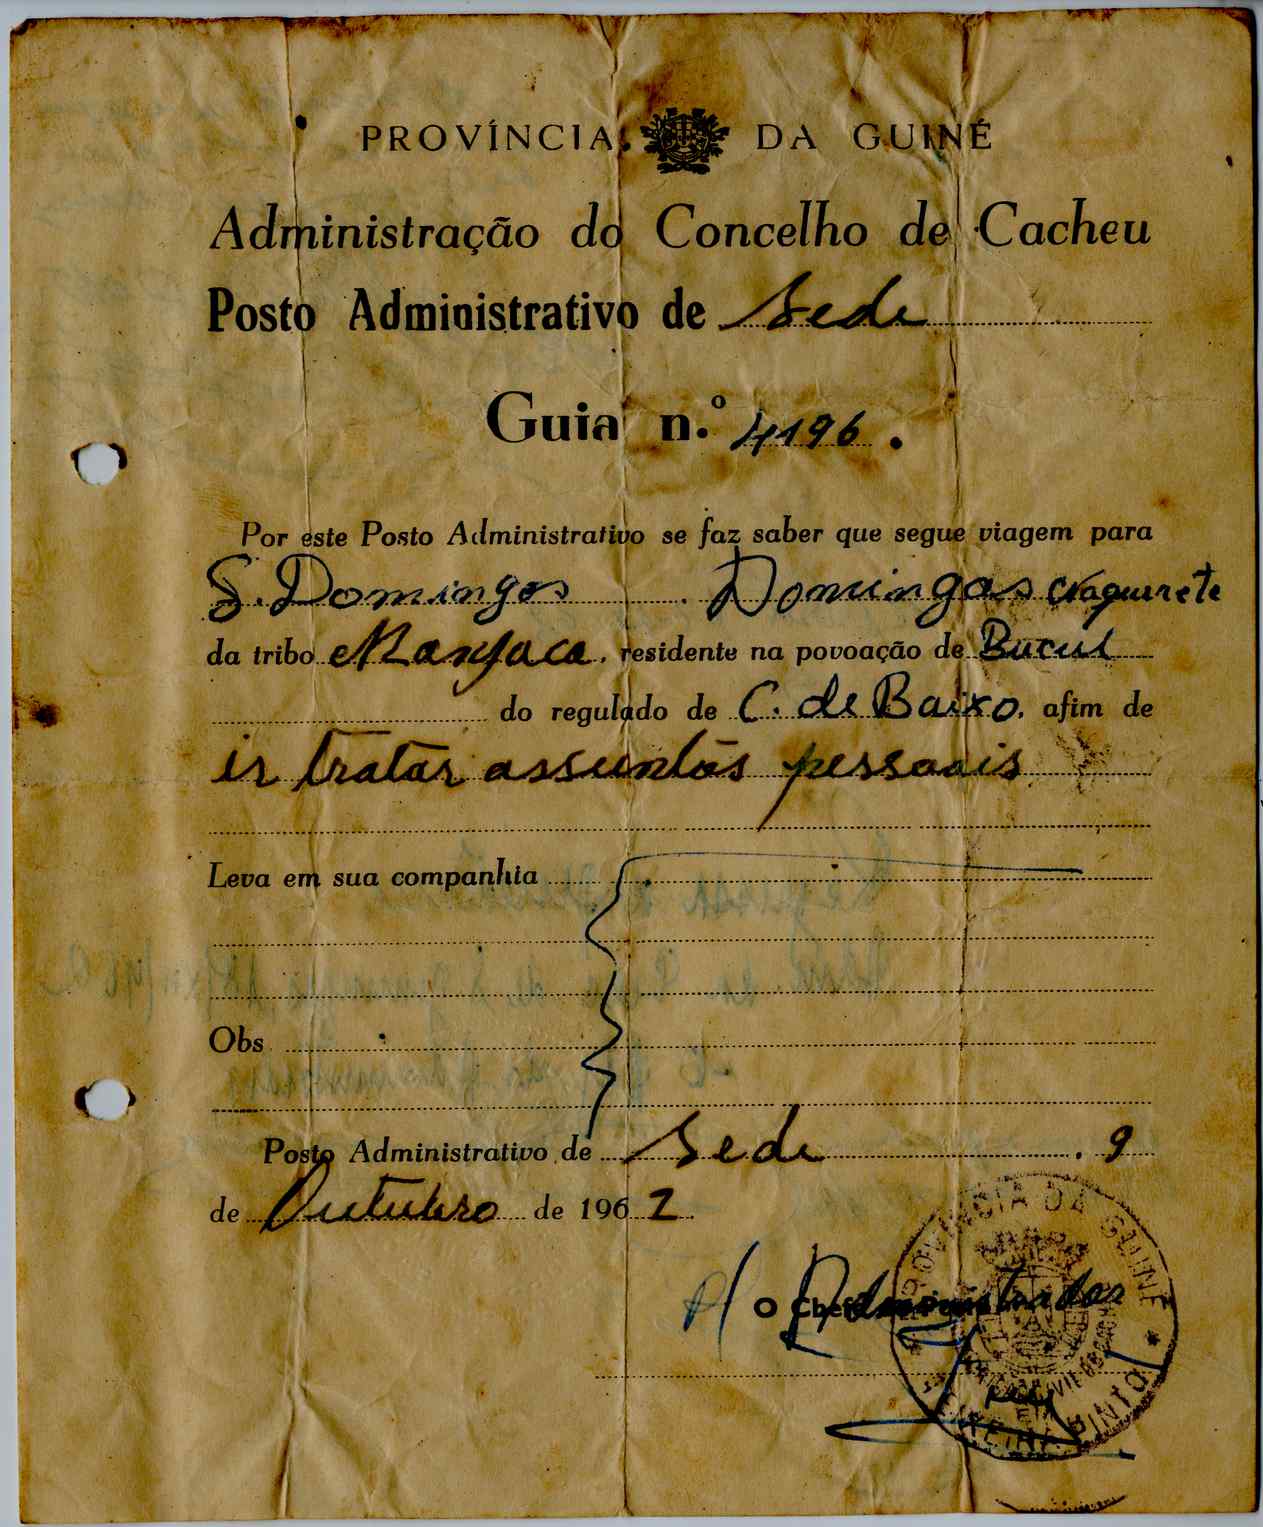 PROVÍNCIA DA GUINÉ
Administração do Concelho de Cacheu
Posto Administrativo de Sede
Guia n.º 4196.
Por este Posto Administrativo se faz saber que segue viagem para
S. Domingos Domingas
da tribo Manjaca, residente na povoação de Bucul
do regulado de C. de Baixo, afim de
ir tratar assuntos pessoais
Leva em sua companhia
Obs
Posto Administrativo de Sede, 9
de Outubro de 1962
O Administrador
PROVÍNCIA DA GUINÉ